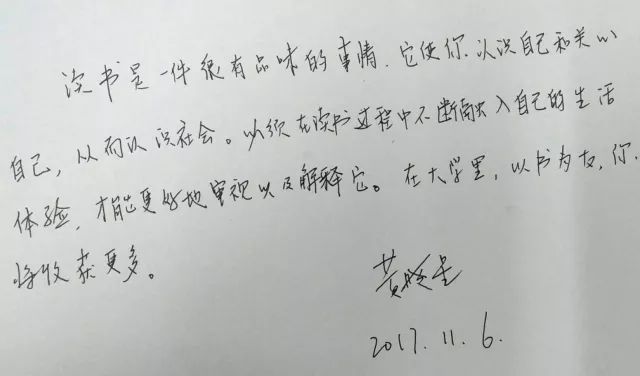 读书是一件很有品味的事情，它使你认识自己和关心
自己，从而认识社会。必须在读书过程中不断融入自己的生活
体验，才能更好地审视以及解释它。在大学里，以书为友，你
将收获更多。
黄晓星
2017.11.6.